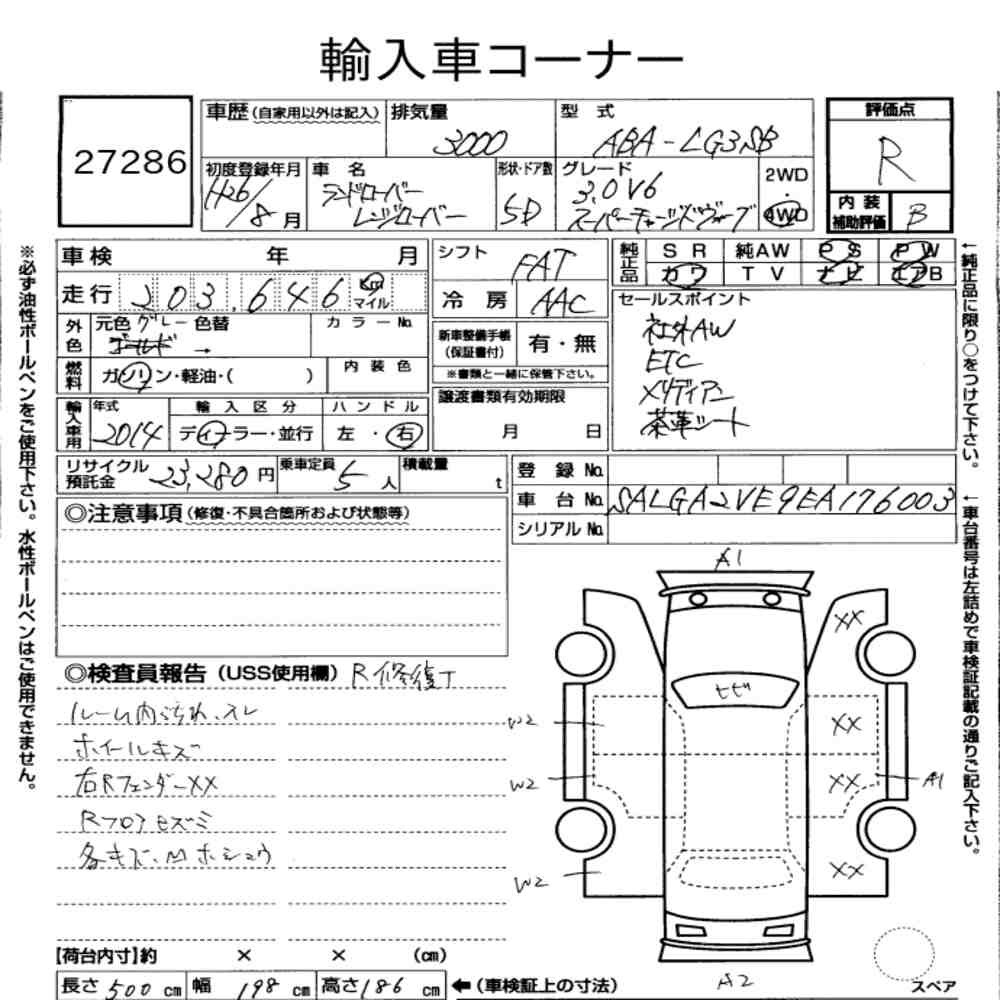 輸入車コーナー
27286
車歴(自家用以外は記入) 排気量 3000 型式 ABA-LG3SB
評価点 R
初度登録年月 H26/8月 車名 ランドローバー レンジローバー
形状・ドア数 5D グレード 3.0 V6 スーパーチャージドヴォーグ
2WD・4WD
内装補助評価 B
車検 年 月
走行 203,646 km マイル
シフト FAT
冷房 AAC
純正品 SR 純AW PS PW
カワ TV ナビ エアB
外色 元色 グレー 色替 カラーNo.
ゴールド →
燃料 ガソリン・軽油・( ) 内装色
新車整備手帳(保証書付) 有・無
※書類と一緒に保管下さい。
セールスポイント
社外AW
ETC
メリディアン
茶革シート
輸入車用 年式 2014 輸入区分 ディーラー・並行 ハンドル 左・右
譲渡書類有効期限 月 日
リサイクル預託金 23,280円 乗車定員 5人 積載量 t
登録No.
車台No. SALGA2VE9EA176003
シリアルNo.
◎注意事項(修復・不具合箇所および状態等)
◎検査員報告(USS使用欄) R修復丁
ルーム内汚れ、スレ
ホイールキズ
右RフェンダーXX
Rフロアヒズミ
各キズ、Mホシュウ
A1
XX
ヒビ
W2 XX
W2 XX A1
W2 XX
A2
スペア
【荷台内寸】約 × × (cm)
長さ 500 cm 幅 198 cm 高さ 186 cm ←(車検証上の寸法)
※必ず油性ボールペンをご使用下さい。水性ボールペンはご使用できません。
←純正品に限り○をつけて下さい。
←車台番号は左詰めで車検証記載の通りご記入下さい。